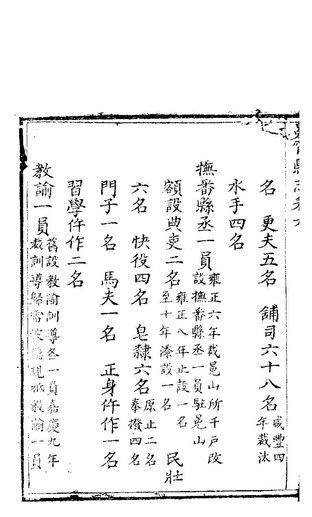 縣志卷六
名 更夫五名 舖司六十八名 咸豐四
年裁汰
水手四名
撫番縣丞一員 雍正六年裁冕山所千戸改
設撫番縣丞一員駐冕山
額設典吏二名 雍正八年止設一名
至十年添設一名 民壯
六名 快役四名 皂隸六名 原止二名
奉撥四名
門子一名 馬夫一名 正身仵作一名
習學仵作二名
教諭一員 舊設教諭訓導各一員嘉慶九年
裁訓導歸雷波廳現教諭一員